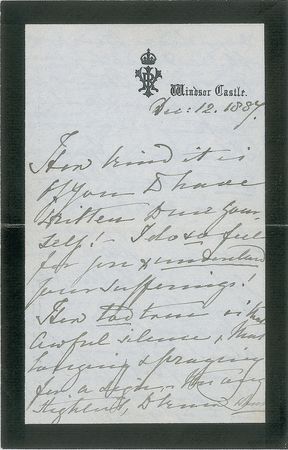 Windsor Castle.
Dec: 12. 1887.
How kind it is
of you to have
written one your
self! I do so feel
for you & understand
your sufferings!
How too true is that
awful silence, that
longing & praying
for a sign.
Highest,